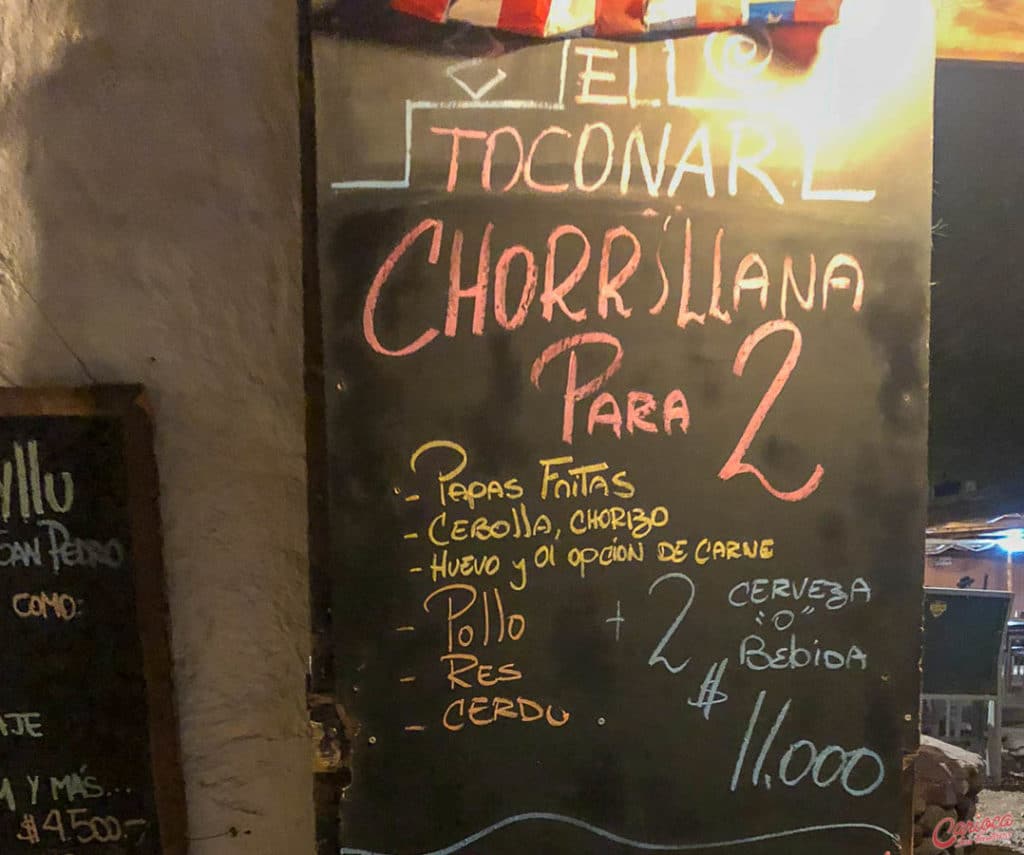 ELL
TOCONAR
CHORRILLANA
PARA 2
- PAPAS FRITAS
- CEBOLLA, CHORIZO
- HUEVO y 01 OPCION DE CARNE
- POLLO
- RES
- CERDO.
+ 2 CERVEZA
"O"
BEBIDA
$ 11.000
yllu
SAN PEDRO
COMO:
AJE
A Y MÁS...
$4.500.-
Carioca